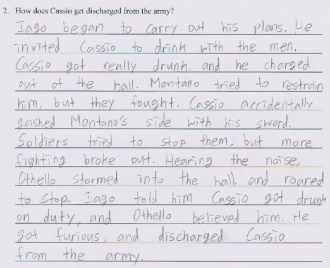 2. How does Cassio get discharged from the army?
Iago began to carry out his plans. He
invited Cassio to drink with the men.
Cassio got really drunk and he charged
out of the hall. Montano tried to restrain
him, but they fought. Cassio accidentally
gashed Montano's side with his sword.
Soldiers tried to stop them, but more
fighting broke out. Hearing the noise,
Othello stormed into the hall and roared
to stop. Iago told him Cassio got drunk
on duty, and Othello believed him. He
got furious, and discharged Cassio
from the army.